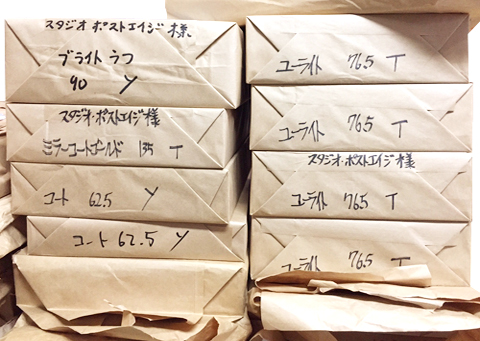 スタジオ ポストエイジ様
ブライト ラフ
90 Y
スタジオ・ポストエイジ様
ミラーコートゴールド 135 T
コート 62.5 Y
コート 62.5 Y
ユーライト 76.5 T
ユーライト 76.5 T
スタジオ・ポストエイジ様
ユーライト 76.5 T
ユーライト 76.5 T